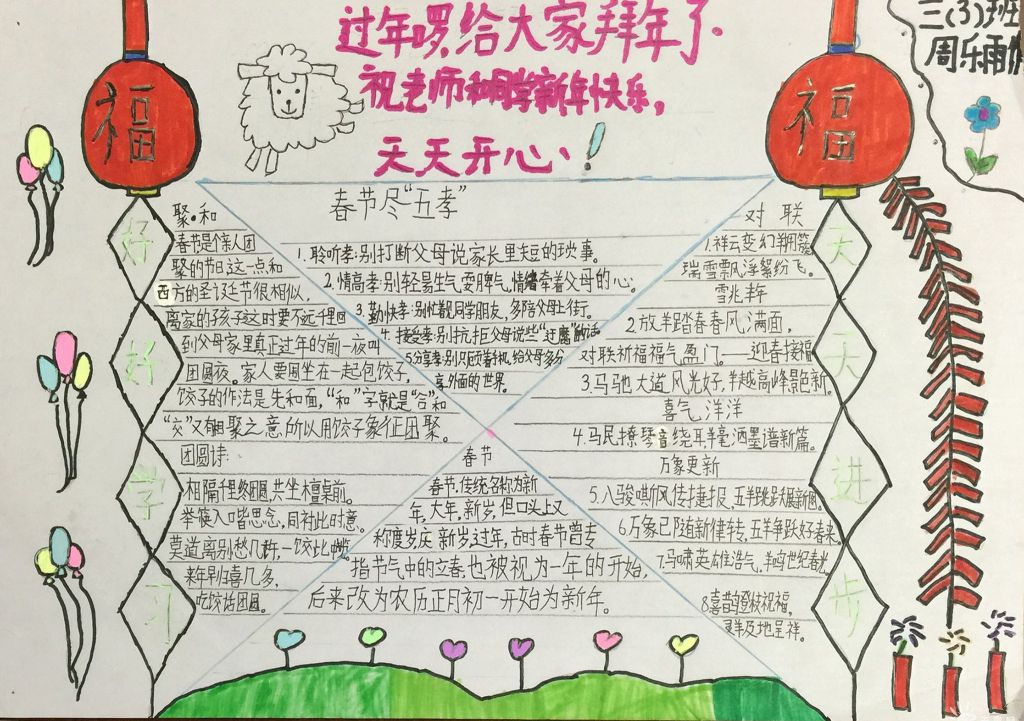 过年啰,给大家拜年了.
祝老师和同学新年快乐,
天天开心、!
三(3)班
周乐雨
福
福
好
好
学
习
天
天
进
步
春节尽“五孝”
1.聆听孝:别打断父母说家长里短的琐事。
2.情高孝:别轻易生气耍脾气,情绪牵着父母的心。
3.勤快孝:别忙着见同学朋友,多陪父母上街。
4.接受孝:别抗拒父母说些“迂腐”的话
5.分享孝:别只顾着手机,给父母多分
享外面的世界。
聚•和
春节是个亲人团
聚的节日这一点和
西方的圣诞节很相似,
离家的孩子这时要不远千里回
到父母家里真正过年的前一夜叫
团圆夜。家人要围坐在一起包饺子,
饺子的作法是先和面,“和”字就是“合”和
“交”又有相聚之意,所以用饺子象征团聚。
团圆诗:
相隔千里终团圆,共坐檀桌前。
举筷入嘴思念,同衬此时意。
莫道离别愁几许,一饺比
来年别喜几多,
吃饺话团圆。
春节
春节,传统名称为新
年,大年,新岁,但口头上又
称度岁庆新岁,过年,古时春节曾专
指节气中的立春,也被视为一年的开始,
后来改为农历正月初一开始为新年。
对联
1.祥云变幻翔
瑞雪飘浮絮纷飞。
雪兆丰年
2.放羊踏春春风满面,
对联祈福福气盈门。——迎春接福
3.马驰大道风光好,羊越高峰景色新。
喜气洋洋
4.马民撩琴音绕耳羊毫洒墨谱新篇。
万象更新
5.八骏嘶风传捷报,五羊跳跃展新图。
6.万象已随新律转,五羊争跃好春来。
7.马啸英雄浩气,羊鸣世纪春光
8.喜昔鹊登枝祝福,
灵羊及地呈祥。